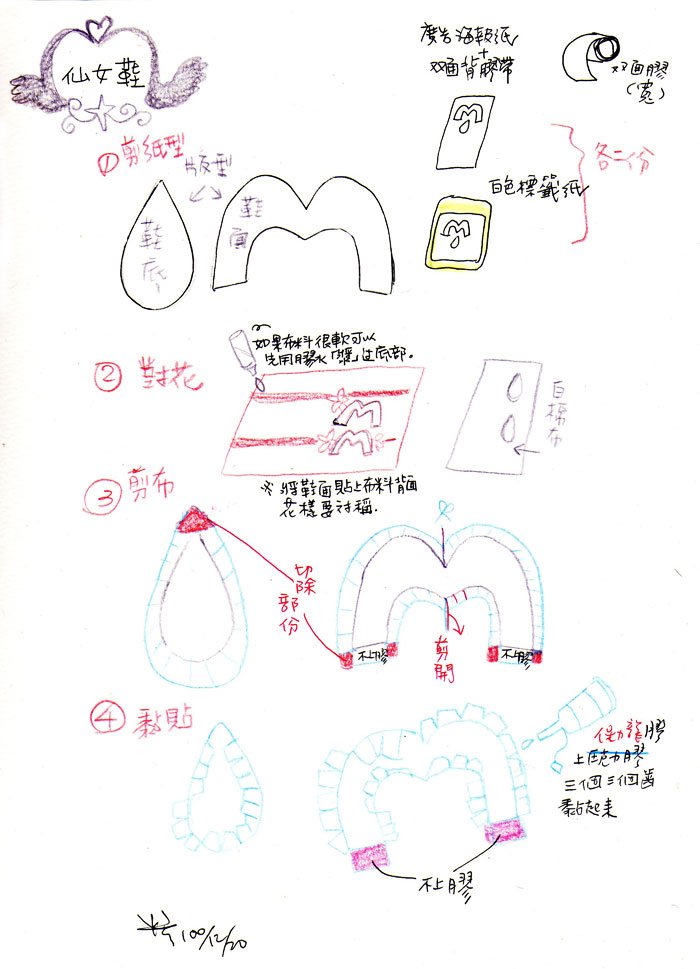 仙女鞋
廣告海報紙
+
双面背膠帶
双面膠
(寬)
①剪紙型
版型
鞋底
鞋面
白色標籤紙
各二份
②對花
如果布料很軟可以
先用膠水「漿」过底部。
白棉布
※將鞋面貼上布料背面
花樣要对稱.
③剪布
切除
部份
不上膠
不上膠
剪開
④黏貼
保力龍膠
上
三個三個齒
黏起來
不上膠
100/12/20